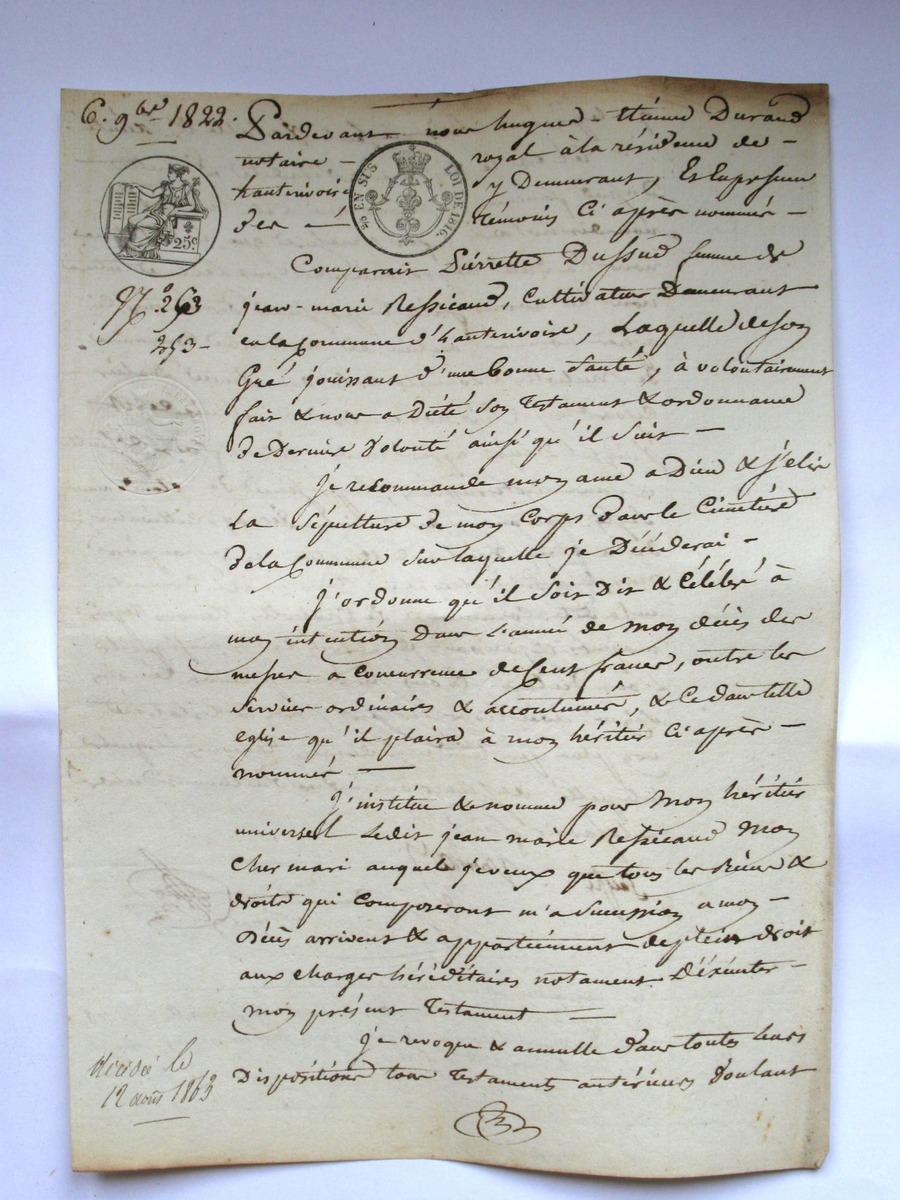 6. 9bre 1822.
Pardevant nous hugues-Etienne Durand
notaire - royal à la résidence de -
hauterivoire y Demeurant, Et En presence
des - témoins Ci après nommés -
EN SUS
LOI DE 1816.
25c
Comparait Pierrette Dussud femme de
N° 263
jean-marie Ressicaud, Cultivateur Demeurant
253 -
en la Commune d'hauterivoire, Laquelle de son
Gré jouissant d'une bonne Santé, à volontairement
fait & nous a Dicté Son Testament & ordonnance
de Derniere Volonté ainsi qu'il Suit -
Je recommande mon ame a Dieu & j'elis
La Sépulture de mon Corps dans le Cimetiere
de la Commune Sur laquelle je Décéderai -
J'ordonne qu'il Soit Dit & Célébré à
mon intention Dans L'année de mon décès des
messes a Concurrence de Cent francs, outre les
Services ordinaires & accoutumés, & Ce dans telle
eglise qu'il plaira à mon héritier Ci après -
nommé -
J'institue & nomme pour mon héritier
universel Ledit jean marie Ressicaud mon
Cher mari auquel je veux que tous les Biens &
droits qui Composeront m'a Sucession a mon -
Décès arrivent & appartiennent de plein droit
aux charges héréditaires notament D'éxécuter -
mon présent Testament -
Je revoque & annulle dans toutes leurs
décédée le
12 août 1863
Dispositions tous Testaments antérieurs Voulant